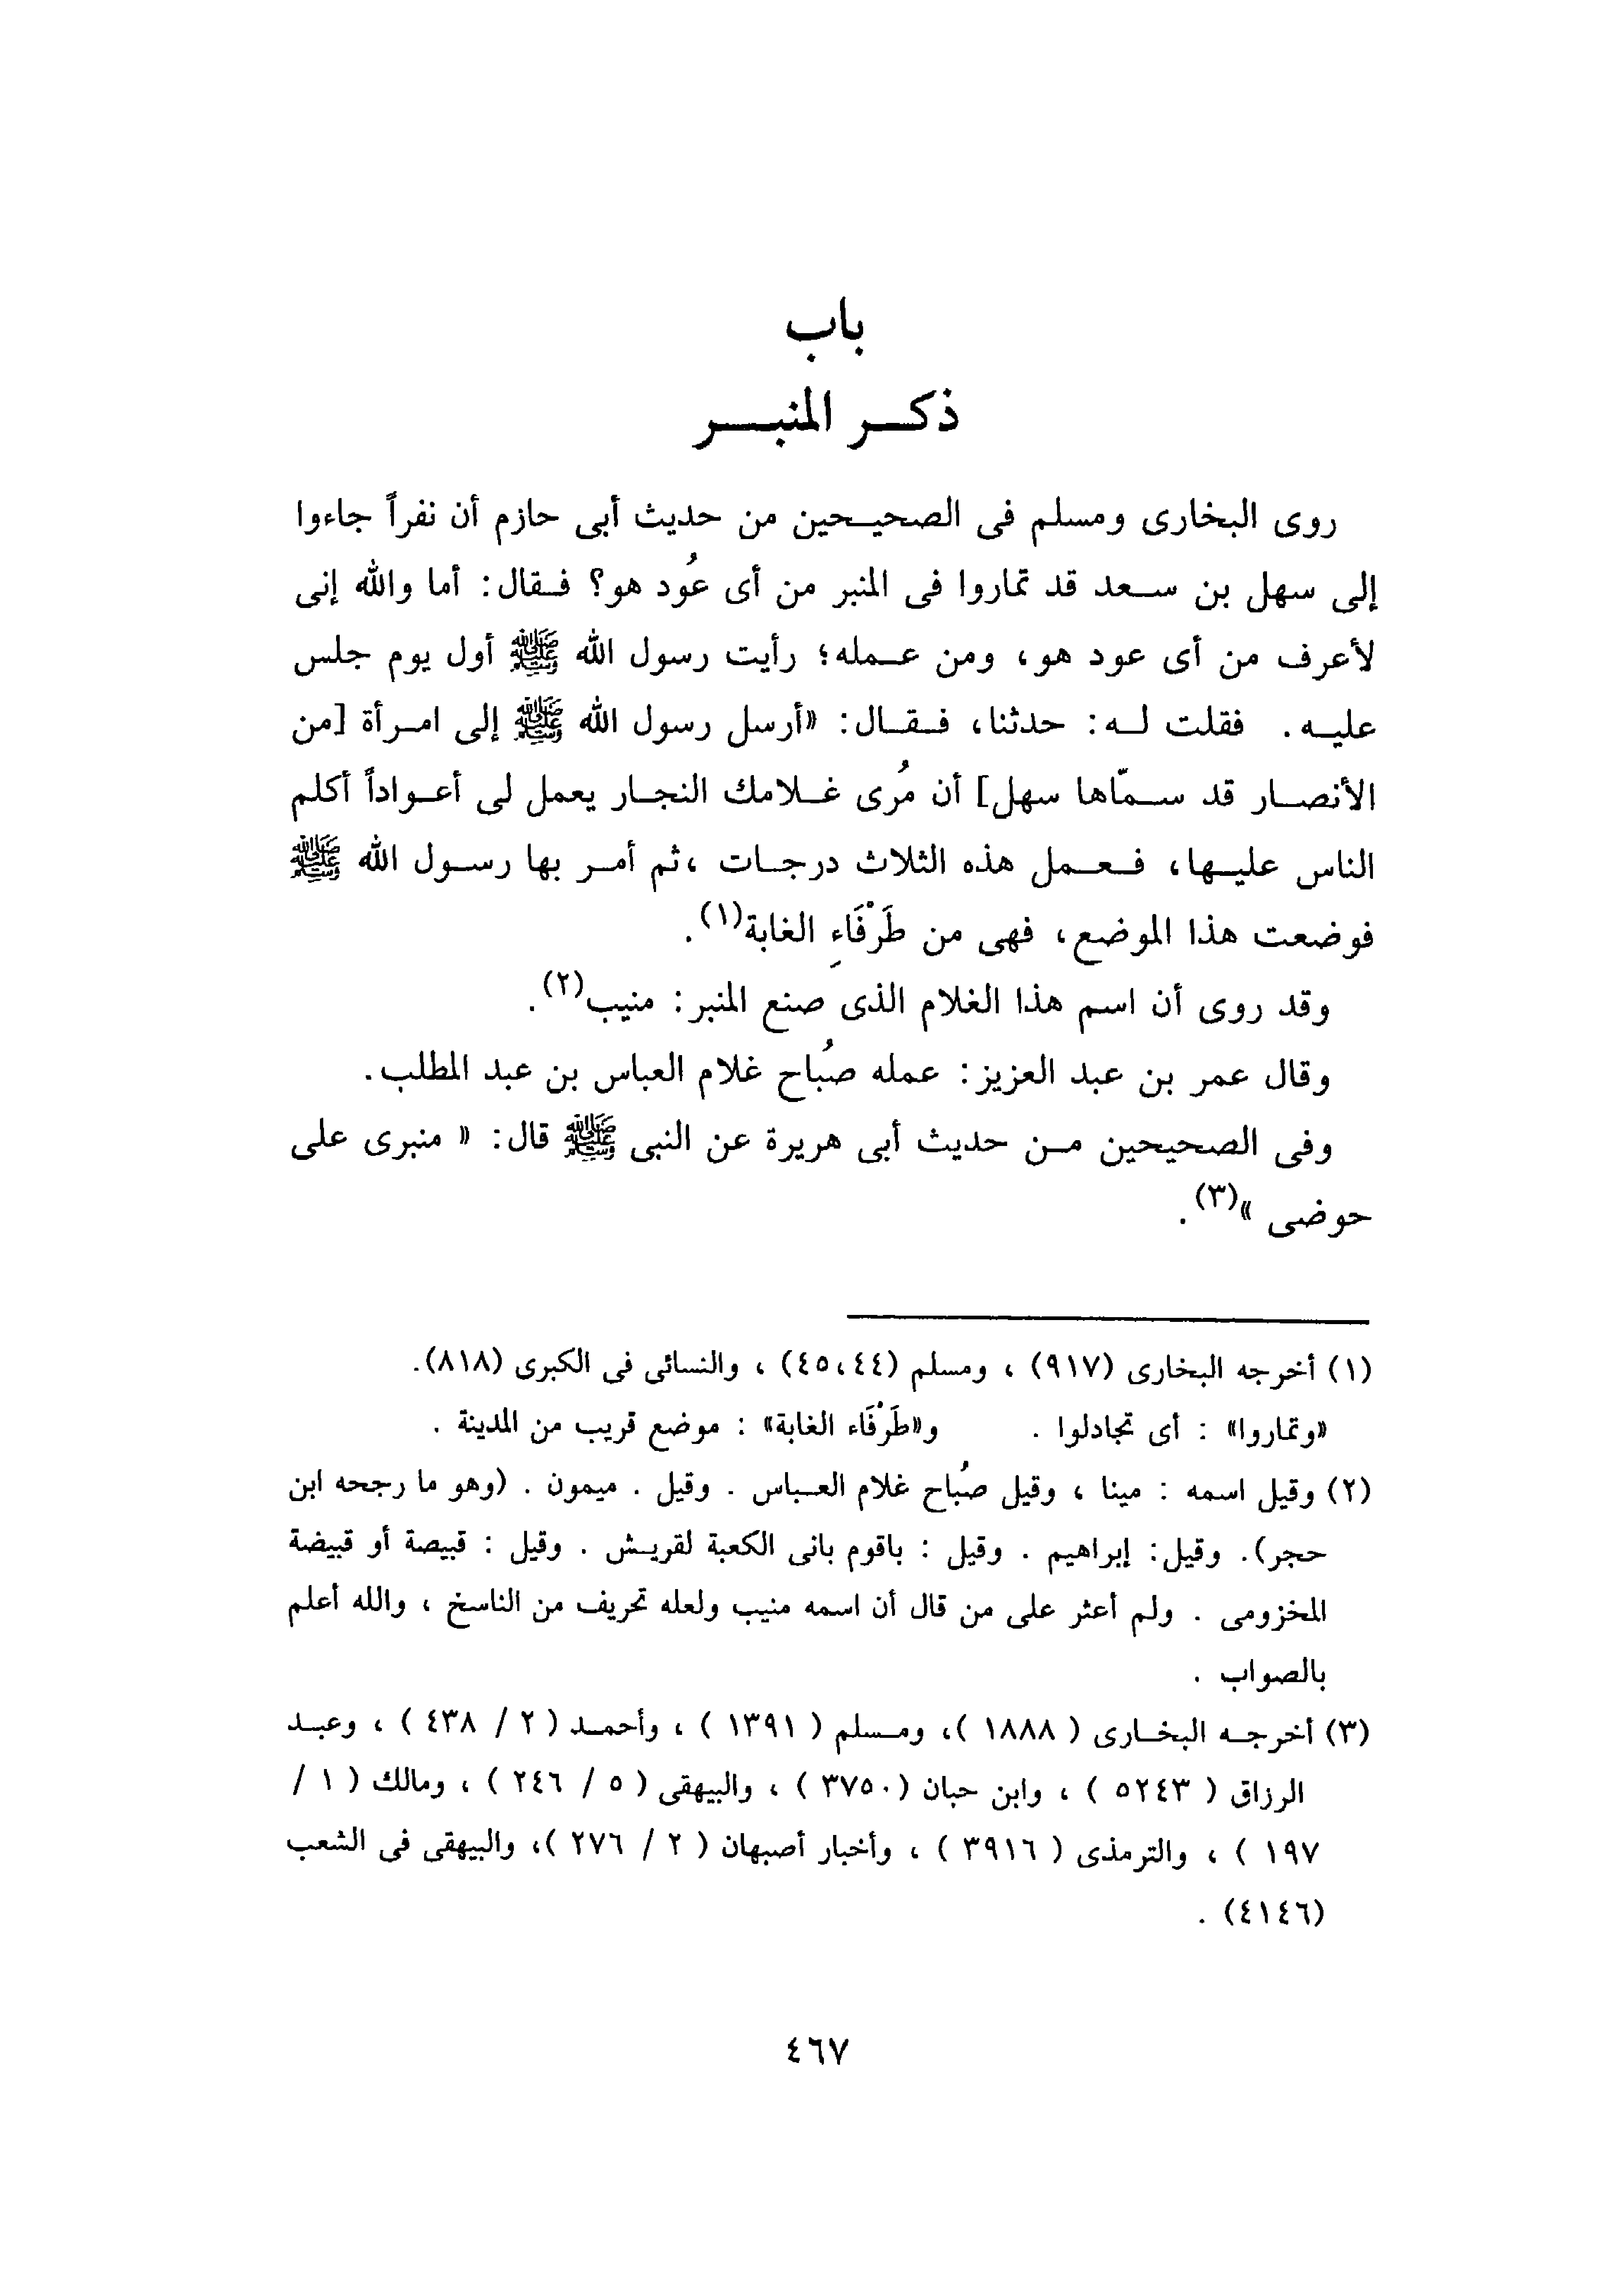 باب
ذكر المنبر
روى البخارى ومسلم فى الصحيحين من حديث أبى حازم أن نفراً جاءوا
إلى سهل بن سعد قد تماروا فى المنبر من أى عُود هو؟ فقال: أما والله إنى
لأعرف من أى عود هو، ومن عمله؛ رأيت رسول الله ﷺ أول يوم جلس
عليه. فقلت له: حدثنا، فقال: «أرسل رسول الله ﷺ إلى امرأة [من
الأنصار قد سمّاها سهل] أن مُرى غلامك النجار يعمل لى أعواداً أكلم
الناس عليها، فعمل هذه الثلاث درجات ،ثم أمر بها رسول الله ﷺ
فوضعت هذا الموضع، فهى من طَرْفَاءِ الغابة(١).
وقد روى أن اسم هذا الغلام الذى صنع المنبر: منيب(٢).
وقال عمر بن عبد العزيز: عمله صُباح غلام العباس بن عبد المطلب.
وفى الصحيحين من حديث أبى هريرة عن النبى ﷺ قال: « منبرى على
حوضى »(٣).
(١) أخرجه البخارى (٩١٧) ، ومسلم (٤٥،٤٤) ، والنسائى فى الكبرى (٨١٨).
«وتماروا» : أى تجادلوا . و«طَرْفَاء الغابة» : موضع قريب من المدينة .
(٢) وقيل اسمه : مينا ، وقيل صُباح غلام العباس . وقيل . ميمون . (وهو ما رجحه ابن
حجر). وقيل: إبراهيم . وقيل : باقوم بانى الكعبة لقريش . وقيل : قبيصة أو قبيضة
المخزومى . ولم أعثر على من قال أن اسمه منيب ولعله تحريف من الناسخ ، والله أعلم
بالصواب .
(٣) أخرجه البخارى ( ١٨٨٨ )، ومسلم ( ١٣٩١ ) ، وأحمد ( ٢ / ٤٣٨ ) ، وعبد
الرزاق ( ٥٢٤٣ ) ، وابن حبان (٣٧٥٠ ) ، والبيهقى ( ٥ / ٢٤٦ ) ، ومالك ( ١ /
١٩٧ ) ، والترمذى ( ٣٩١٦ ) ، وأخبار أصبهان ( ٢ / ٢٧٦ )، والبيهقى فى الشعب
(٤١٤٦) .
٤٦٧